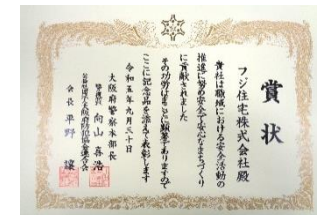 賞状
フジ住宅株式会社殿
貴社は職域における安全活動の
推進に努め安全で安心なまちづくり
に貢献されました
その功労はまことに顕著でありますので
ここに記念品を贈呈して表彰します
令和五年九月三十日
大阪府警察本部長
警視監 向山喜浩
公益社団法人大阪府防犯協会連合会
会長 平野 譲